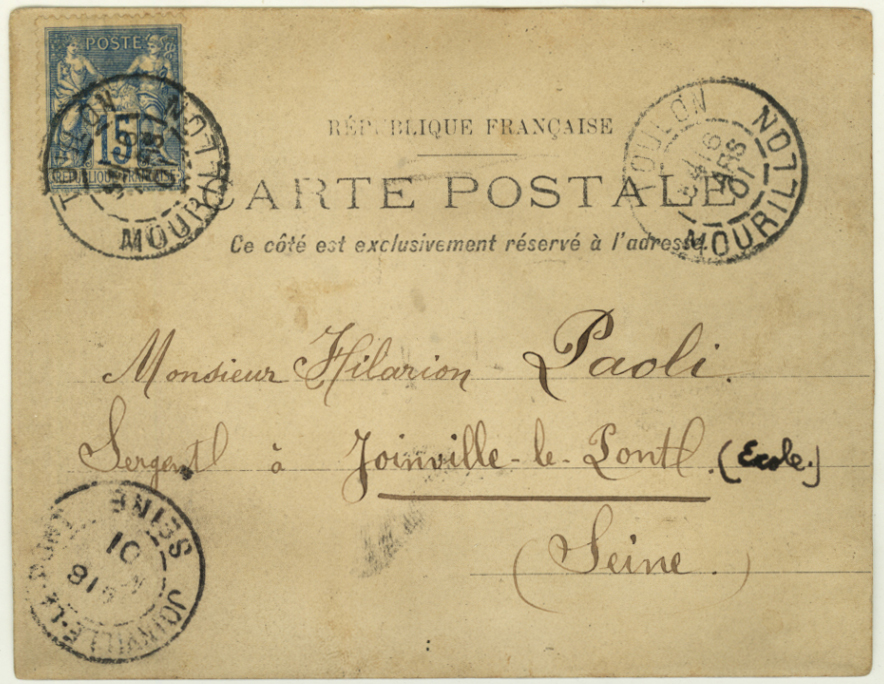 POSTE
15
REPUBLIQUE FRANCAISE
TOULON
MOURILLON
RÉPUBLIQUE FRANÇAISE
CARTE POSTALE
Ce côté est exclusivement réservé à l'adresse.
TOULON
16
MARS
01
MOURILLON
Monsieur Hilarion Paoli.
Sergent à Joinville-le-Pont. (Ecole.)
(Seine.)
JOINVILLE-LE-PONT
SEINE
18
01